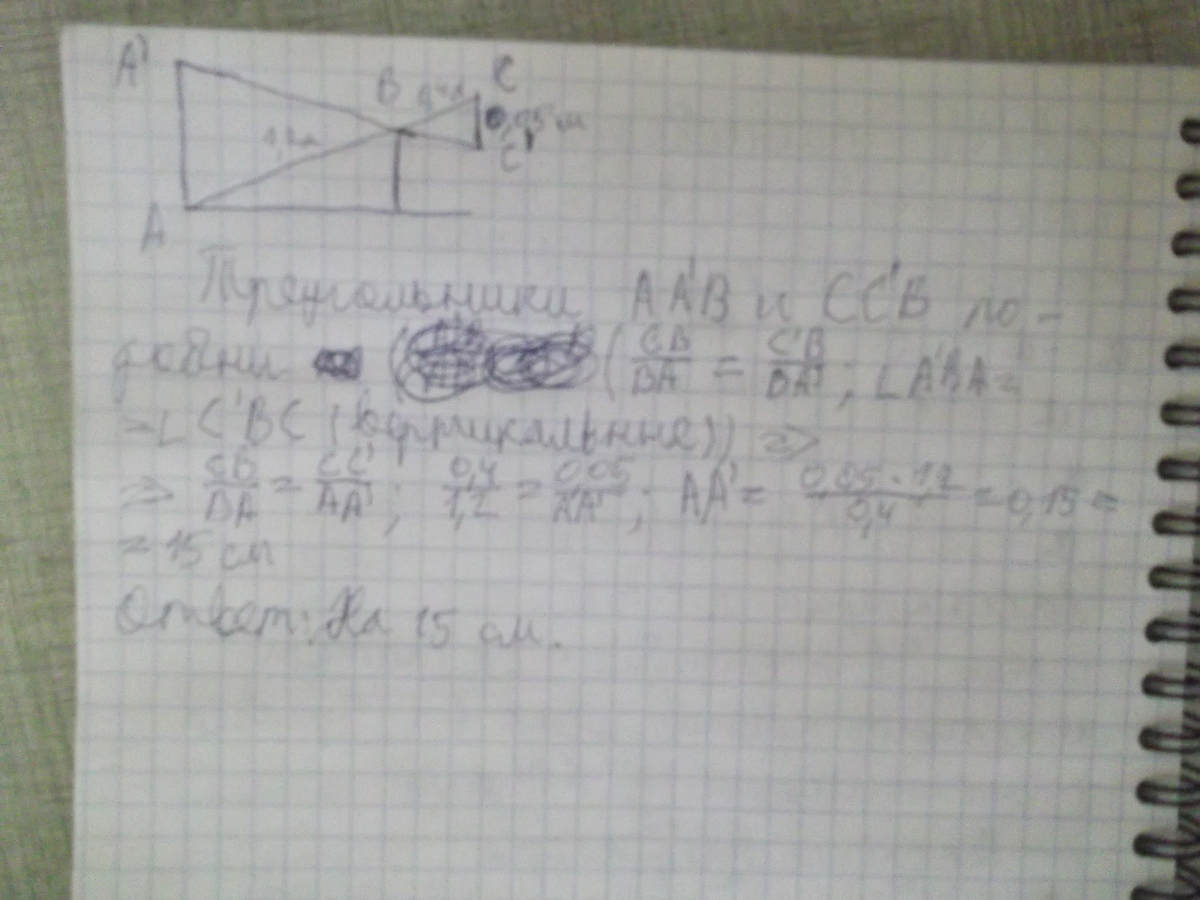 A'
B 0,4 м C
1,2 м 0,05 м
C'
A
Треугольники AA'B и CC'B по-
добны ( CB/BA = C'B/BA' ; ∠A'BA=
=∠C'BC (вертикальные)) =>
=> CB/BA = CC'/AA' ; 0,4/1,2 = 0,05/AA' ; AA' = 0,05·1,2/0,4 = 0,15 =
= 15 см
Ответ: На 15 см.